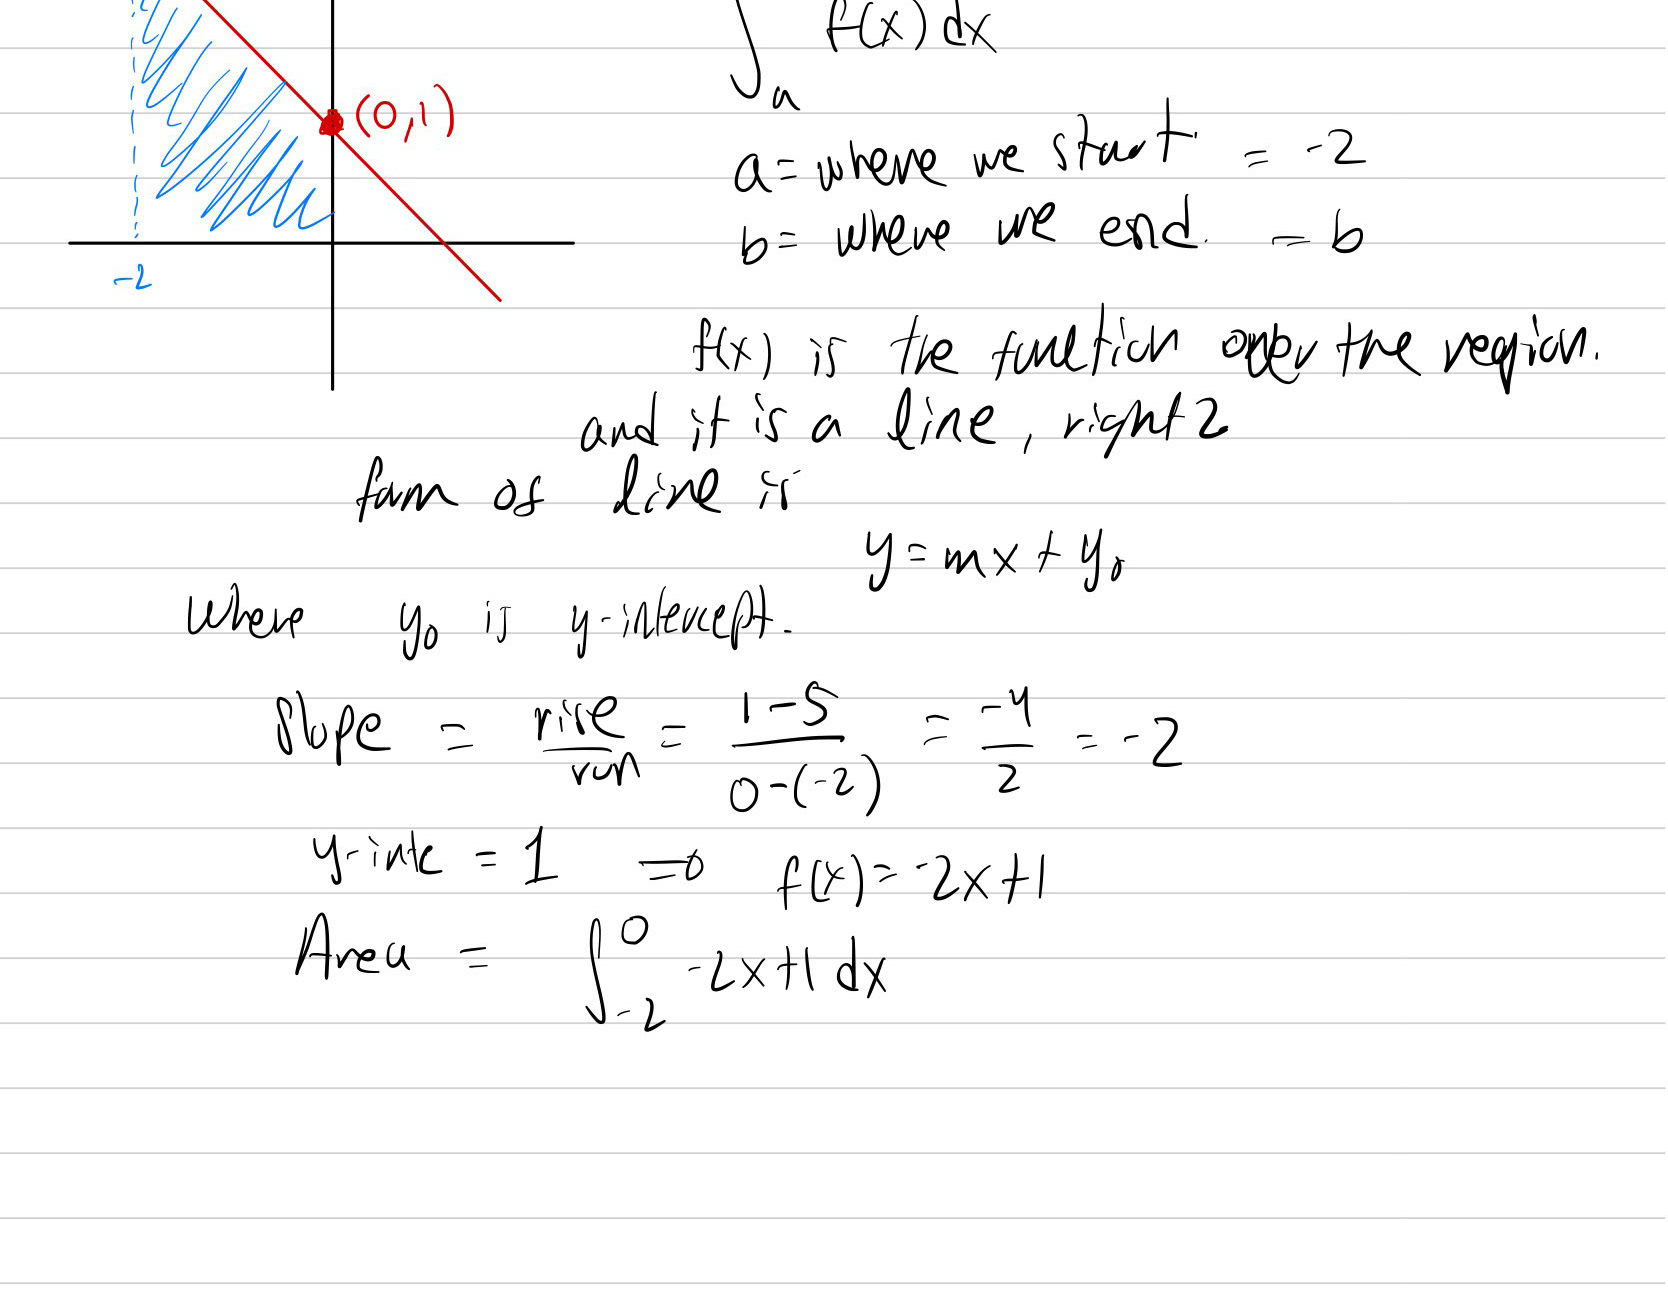 ∫ₐ f(x) dx
(0,1)
a = where we start = -2
b = where we end. = b
-2
f(x) is the function over the region.
and it is a line, right?
form of line is
y = mx + y₀
where y₀ is y-intercept.
Slope = rise/run = (1-5)/(0-(-2)) = -4/2 = -2
y-inte = 1 ⇒ f(x) = -2x+1
Area = ∫₋₂⁰ -2x+1 dx